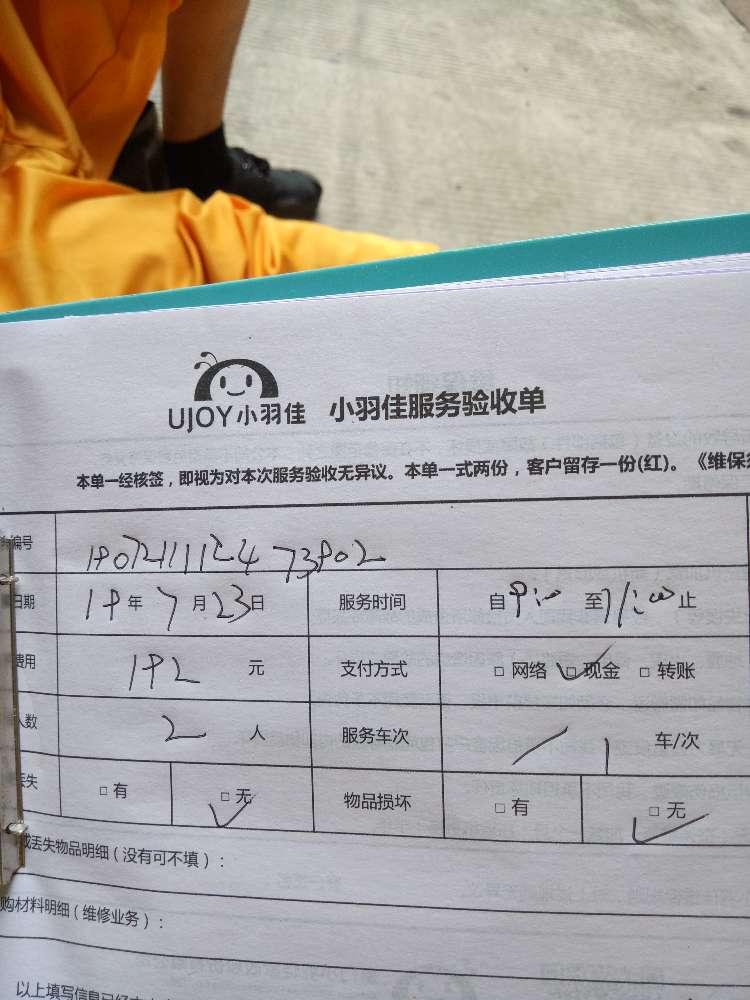 UJOY小羽佳 小羽佳服务验收单
本单一经核签，即视为对本次服务验收无异议。本单一式两份，客户留存一份(红)。《维保
编号 1907211112473902
日期 19年7月23日 服务时间 自9:00至11:00止
费用 192元 支付方式 □网络 ☑现金 □转账
人数 2人 服务车次 1 车/次
丢失 □有 ☑无 物品损坏 □有 ☑无
或丢失物品明细（没有可不填）：
购材料明细（维修业务）：
以上填写信息已经